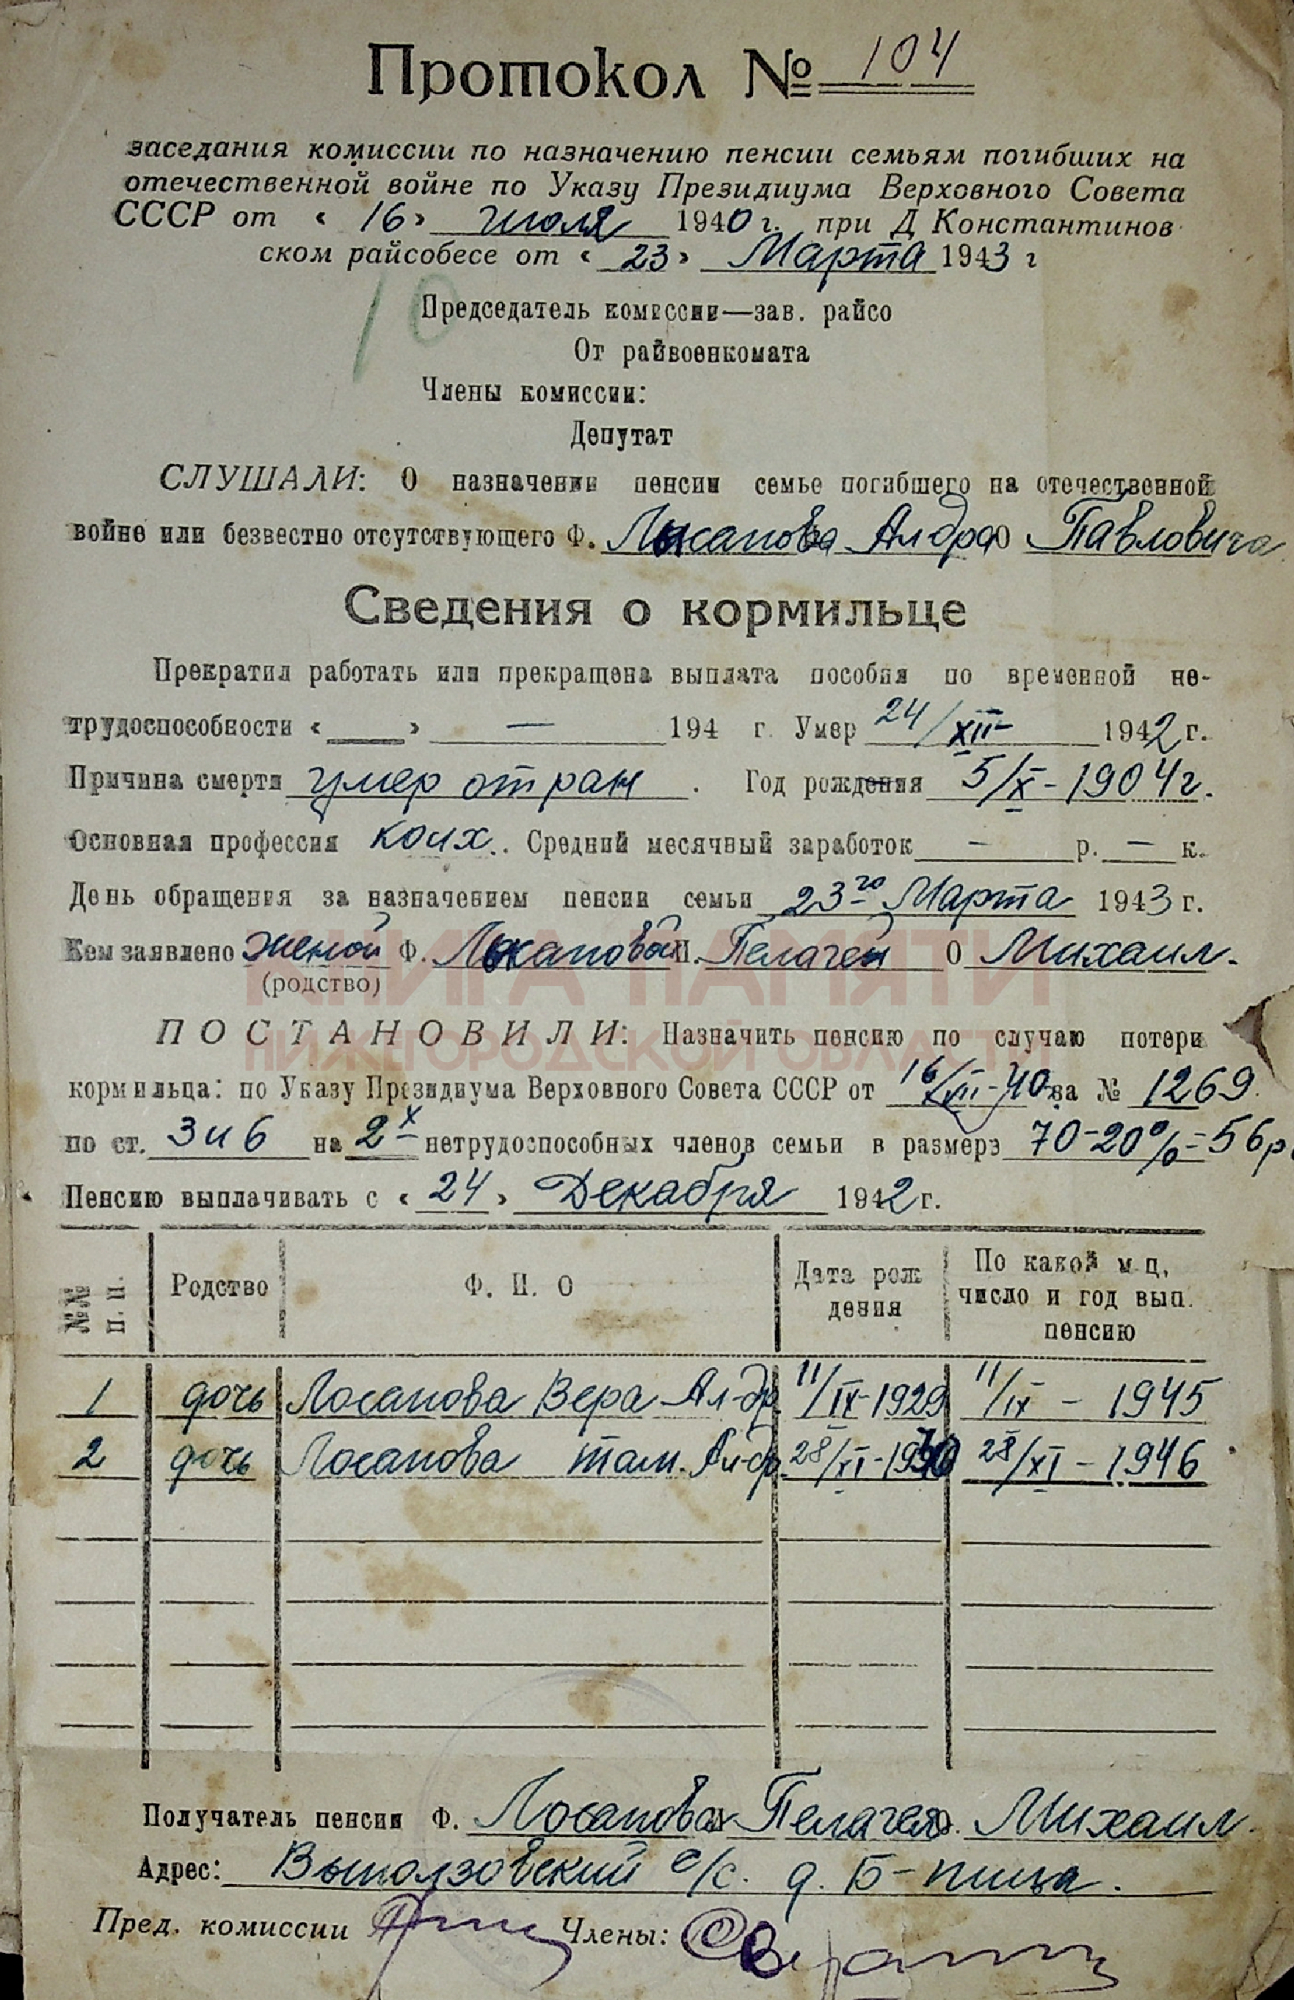 Протокол № 104
заседания комиссии по назначению пенсии семьям погибших на
отечественной войне по Указу Президиума Верховного Совета
СССР от « 16 » июля 1940 г. при Д Константинов
ском райсобесе от « 23 » Марта 1943 г
10
Председатель комиссии—зав. райсо
От райвоенкомата
Члены комиссии:
Депутат
СЛУШАЛИ: О назначении пенсии семье погибшего на отечественной
войне или безвестно отсутствующего Ф. Лосапова Ал-дра О Павловича
Сведения о кормильце
Прекратил работать или прекращена выплата пособия по временной не-
трудоспособности « » — 194 г. Умер 24/XII 1942 г.
Причина смерти умер от ран . Год рождения 5/X-1904 г.
Основная профессия колх. Средний месячный заработок — р. — к.
День обращения за назначением пенсии семьи 23го Марта 1943 г.
Кем заявлено женой Ф. Лосаповой И. Пелагеей О Михаил.
(родство)
КНИГА ПАМЯТИ
НИЖЕГОРОДСКОЙ ОБЛАСТИ
ПОСТАНОВИЛИ: Назначить пенсию по случаю потери
кормильца: по Указу Президиума Верховного Совета СССР от 16/VII-40 за № 1269
по ст. 3 и 6 на 2х нетрудоспособных членов семьи в размере 70-20%=56р.
Пенсию выплачивать с « 24 » Декабря 1942 г.
№№ п. п. Родство Ф. И. О Дата рождения По какой м-ц, число и год вып. пенсию
1 дочь Лосапова Вера Ал-др. 11/IX-1929 11/IX - 1945
2 дочь Лосапова Там. Ал-др. 28/XI-1930 28/XI - 1946
Получатель пенсии Ф. Лосапова И Пелагея О. Михаил.
Адрес: Выползовский с/с. д. Б-пица.
Пред. комиссии Члены: